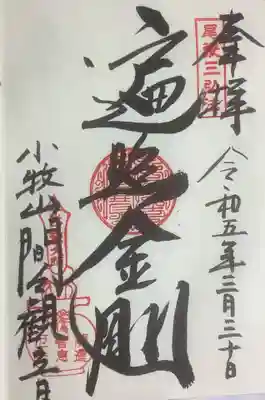 奉拝
令和五年三月三十日
尾張三弘法
遍照金剛
小牧山間々観音